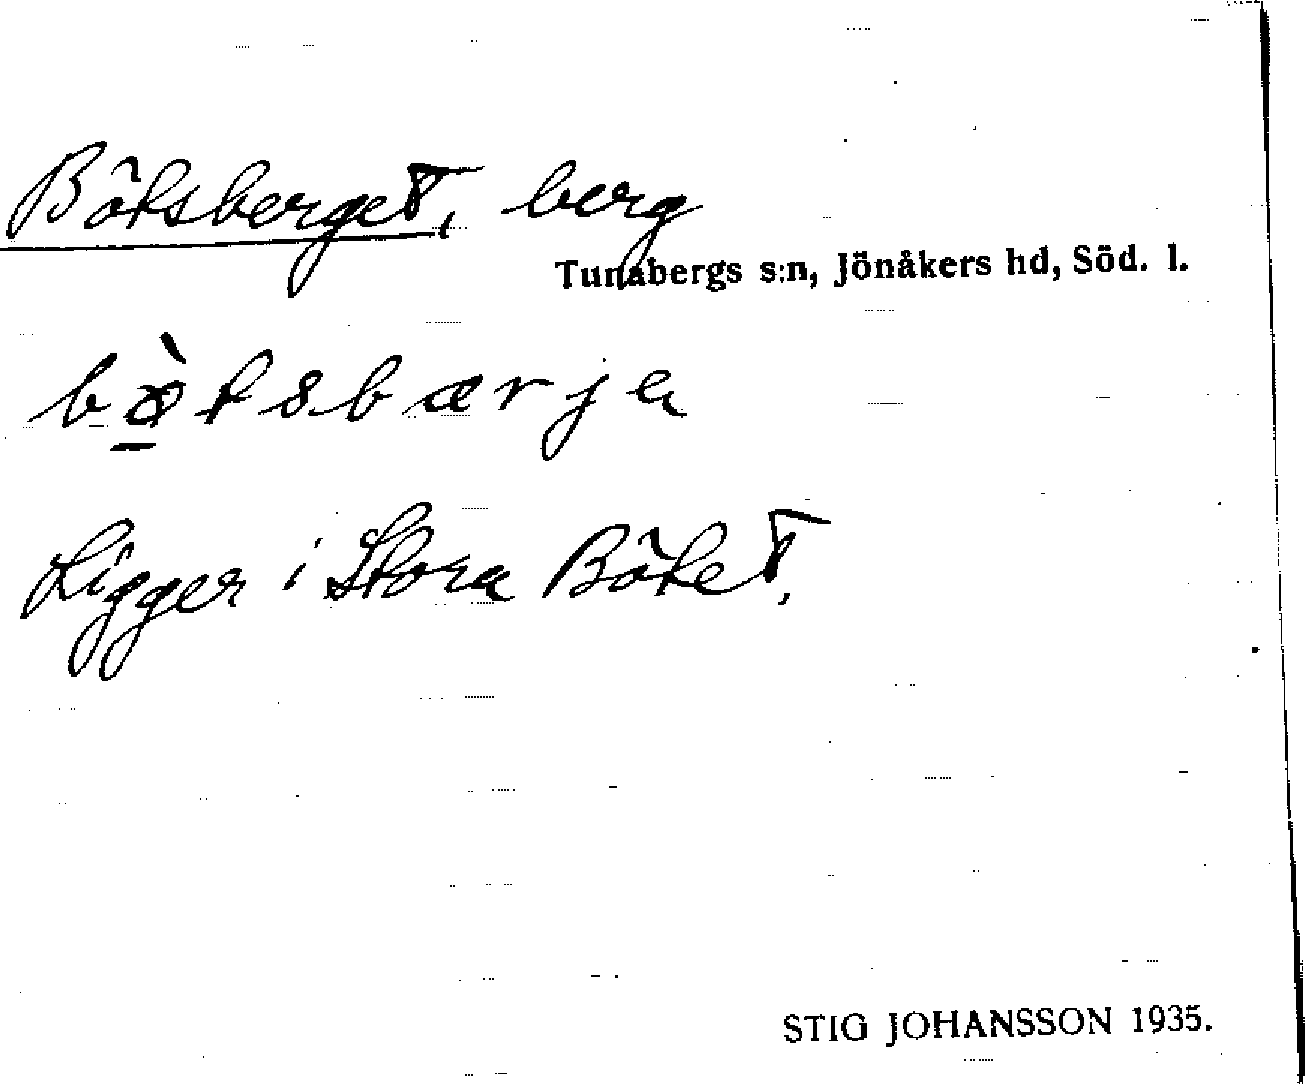 Böksberget, berg
Tunabergs s:n, Jönåkers hd, Söd. l.
bø̠̀ksbærja
Ligger i Stora Böket,
STIG JOHANSSON 1935.